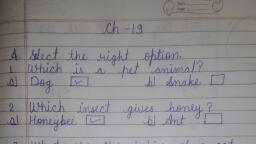 Ch-19
A Select the right option.
1. Which is a pet animal?
a) Dog ✓ b) Snake
2 Which insect gives honey?
a) Honeybee ✓ b) Ant